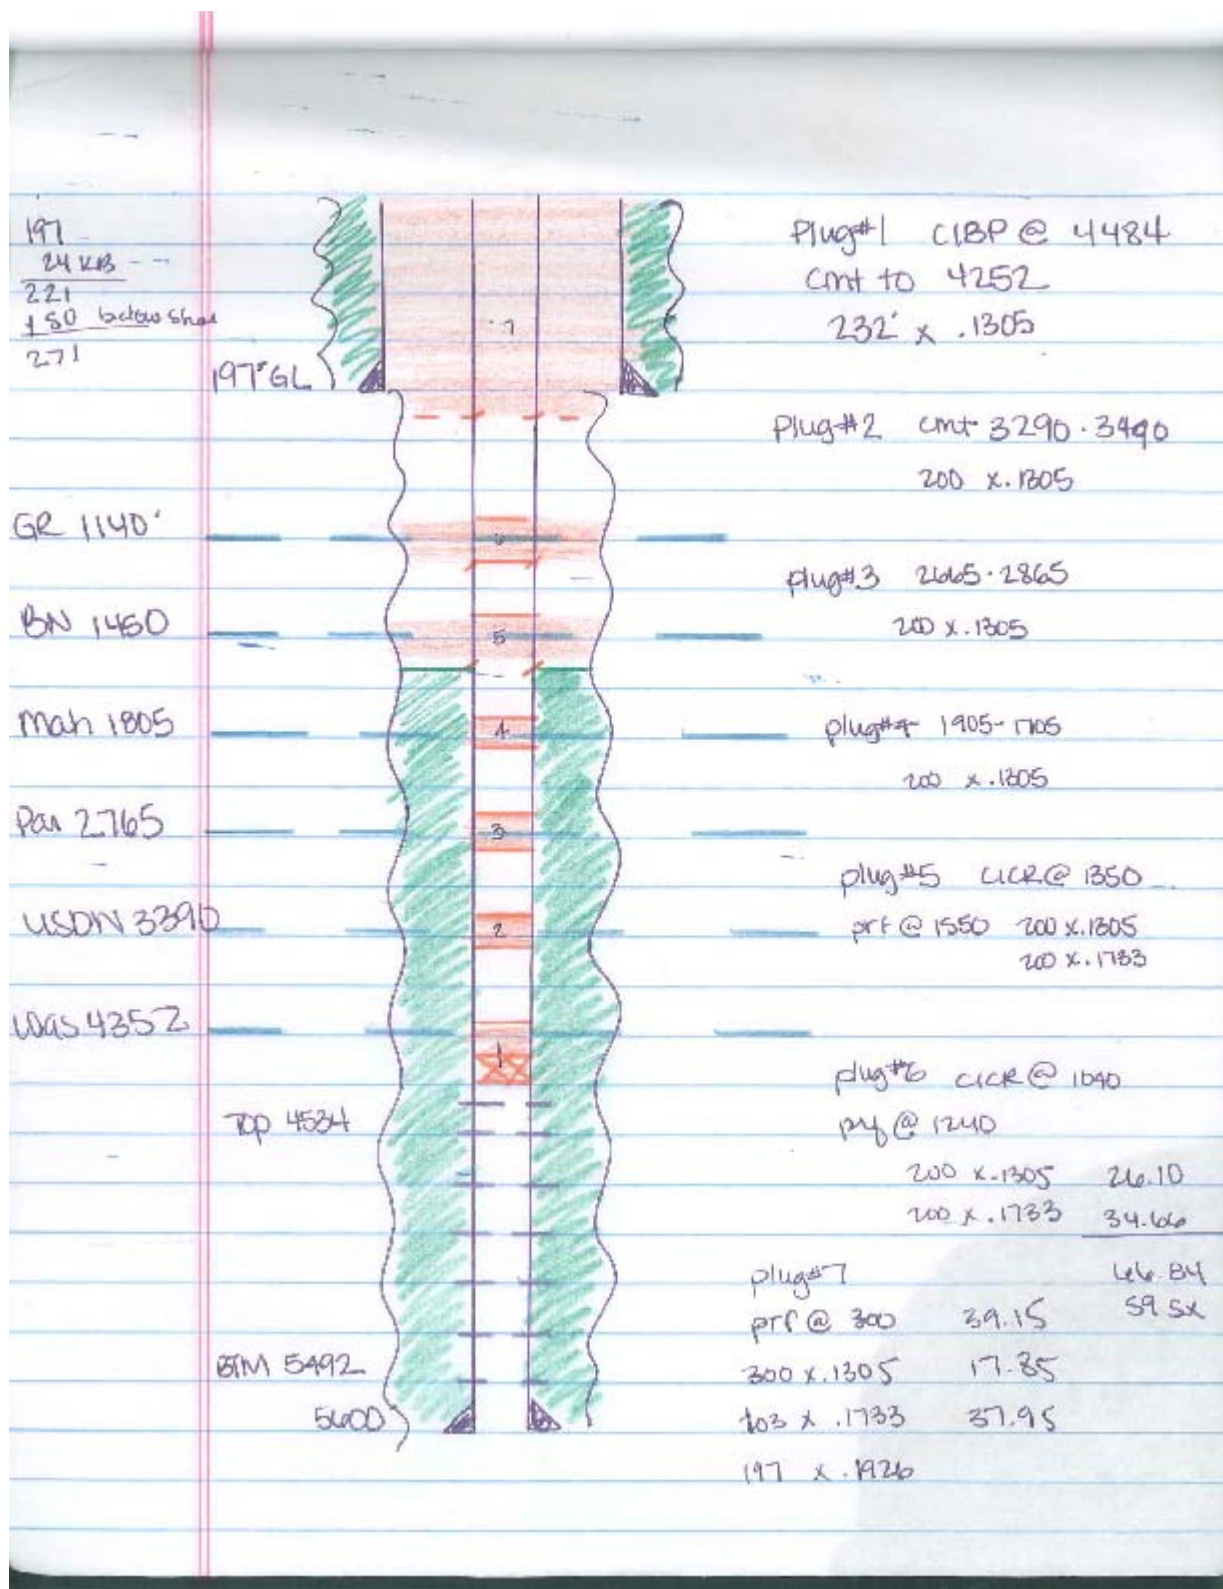 197
24 KB
221
+50 below shoe
271
197' GL
GR 1140'
BN 1450
Mah 1805
Par 2765
USDN 3390
Was 4352
Top 4534
BTM 5492
5600
7
6
5
4
3
2
1
Plug#1 CIBP @ 4484
Cmt to 4252
232' x .1305
Plug#2 cmt 3290-3490
200 x .1305
plug#3 2665-2865
200 x .1305
plug#4 1905-1705
200 x .1305
plug#5 CICR@ 1350
prf @ 1550 200 x .1305
200 x .1733
plug#6 CICR@ 1040
prf @ 1240
200 x .1305 26.10
200 x .1733 34.66
66.84
59 sx
plug#7
prf @ 300 39.15
300 x .1305 17.85
103 x .1733 37.95
197 x .1926